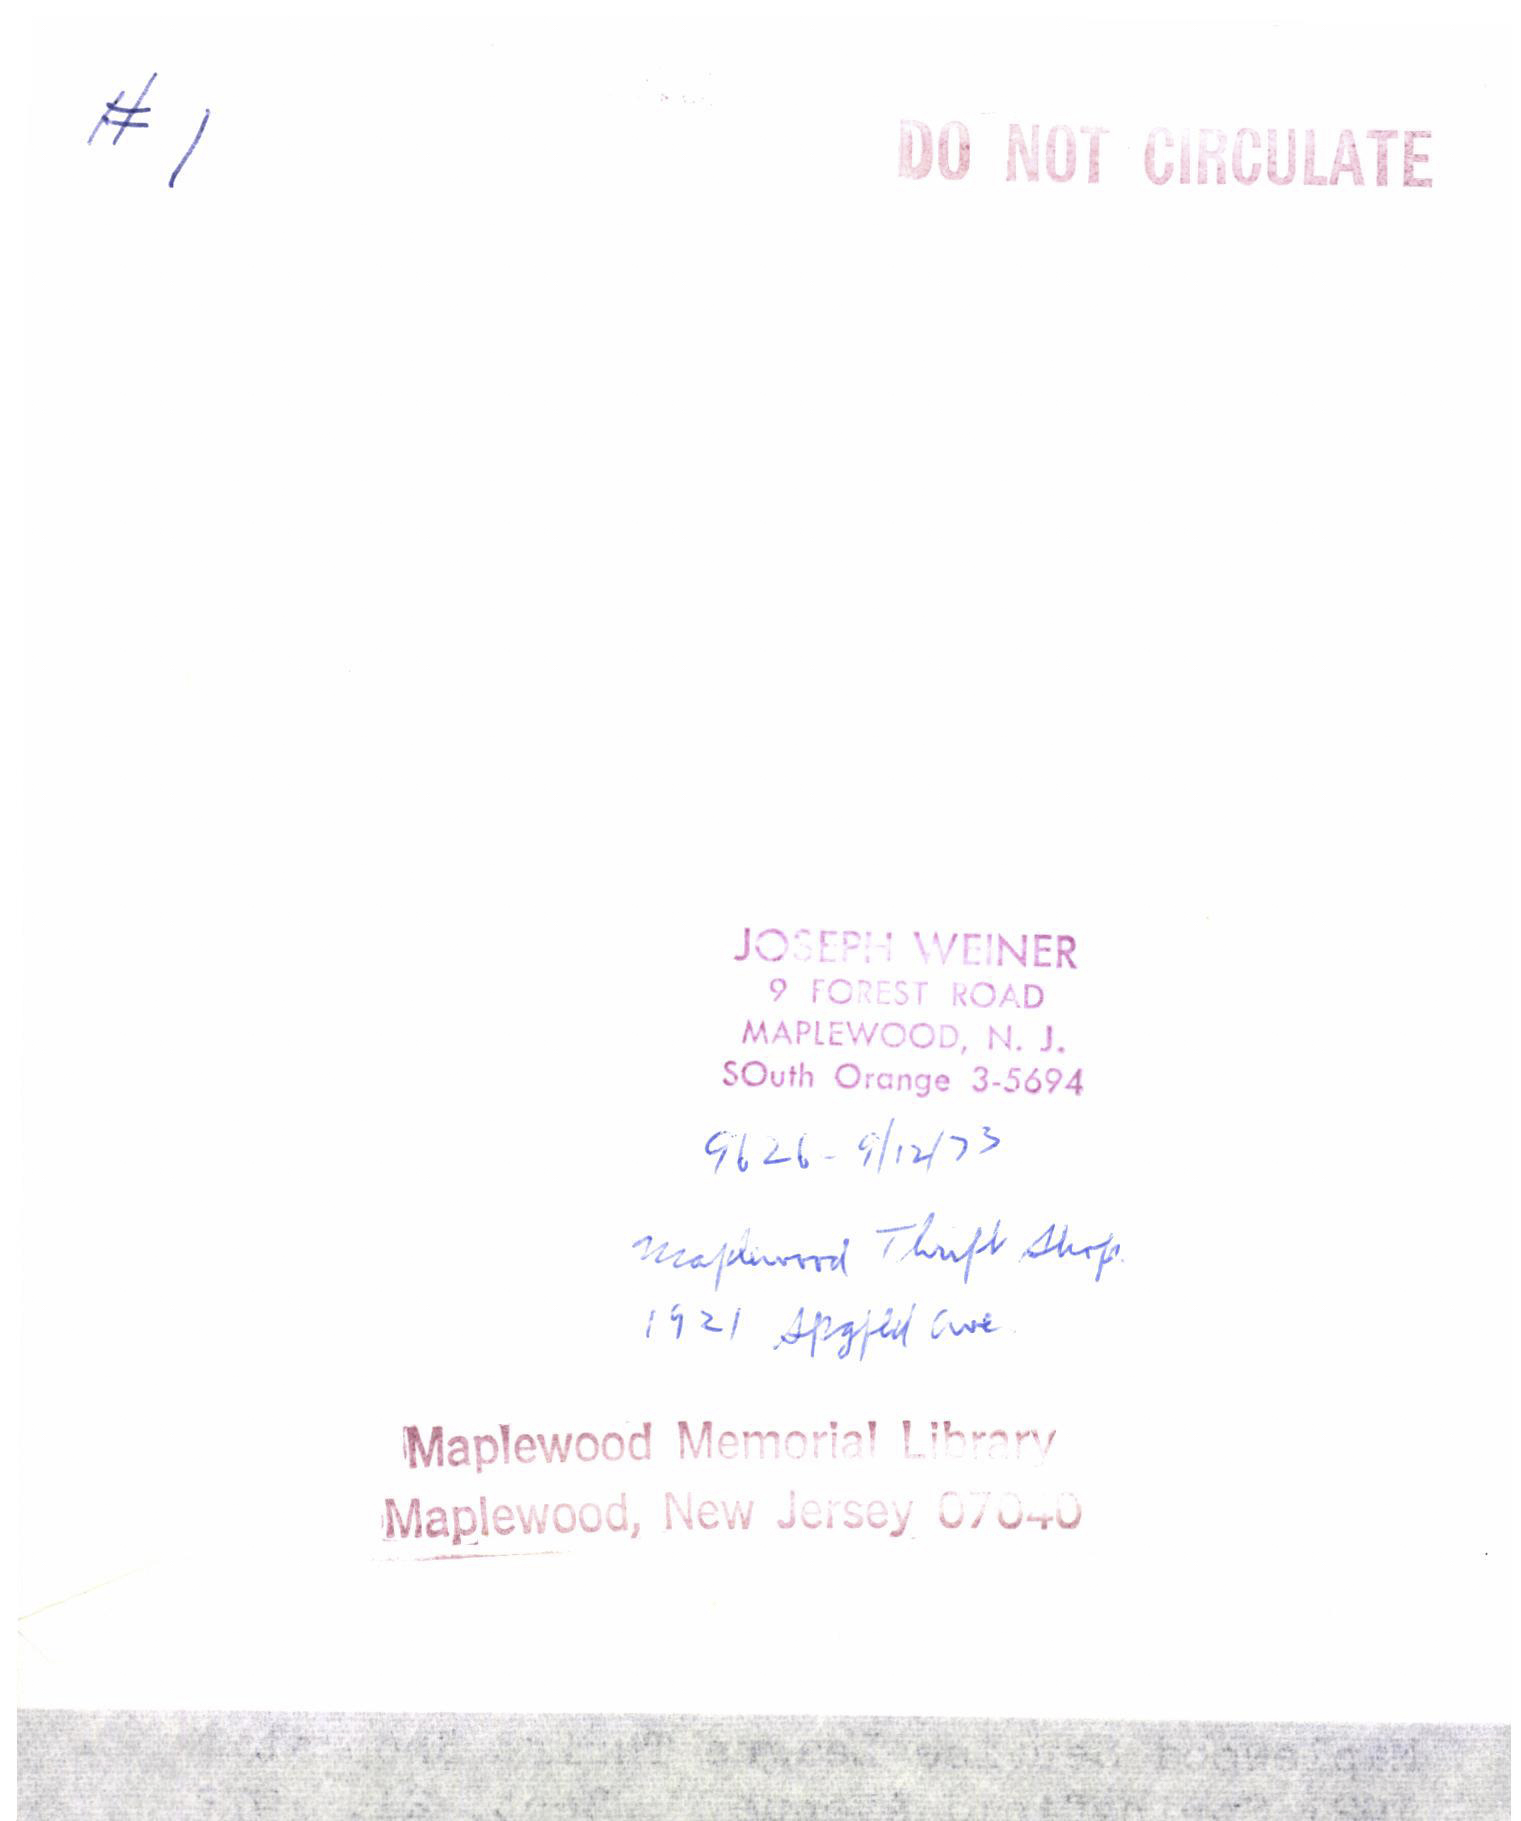 # 1
DO NOT CIRCULATE
JOSEPH WEINER
9 FOREST ROAD
MAPLEWOOD, N. J.
SOuth Orange 3-5694
9626 - 9/12/73
Maplewood Thrift Shop.
1921 Spgfld Ave.
Maplewood Memorial Library
Maplewood, New Jersey 07040